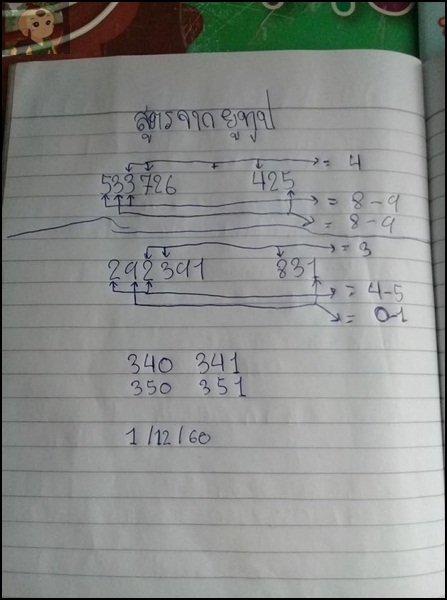 สูตรจากยูทูป
= 4
533726 425
= 8-9
= 8-9
= 3
292391 831
= 4-5
= 0-1
340 341
350 351
1/12/60